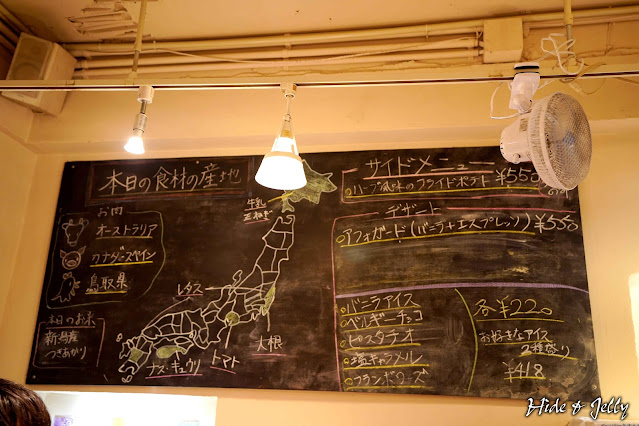 本日の食材の産地
お肉
オーストラリア
カナダ・スペイン
鳥取県
本日のお米
新潟産
つきあかり
牛乳
玉ねぎ
レタス
大根
トマト
ナス・キュウリ
サイドメニュー
ハーブ風味のフライドポテト ¥550
デザート
アフォガード(バニラ+エスプレッソ) ¥550
バニラアイス
ベルギーチョコ
ピスタチオ
塩キャラメル
フランボワーズ
各¥220
お好きなアイス
2種盛り
¥418
Hide & Jelly